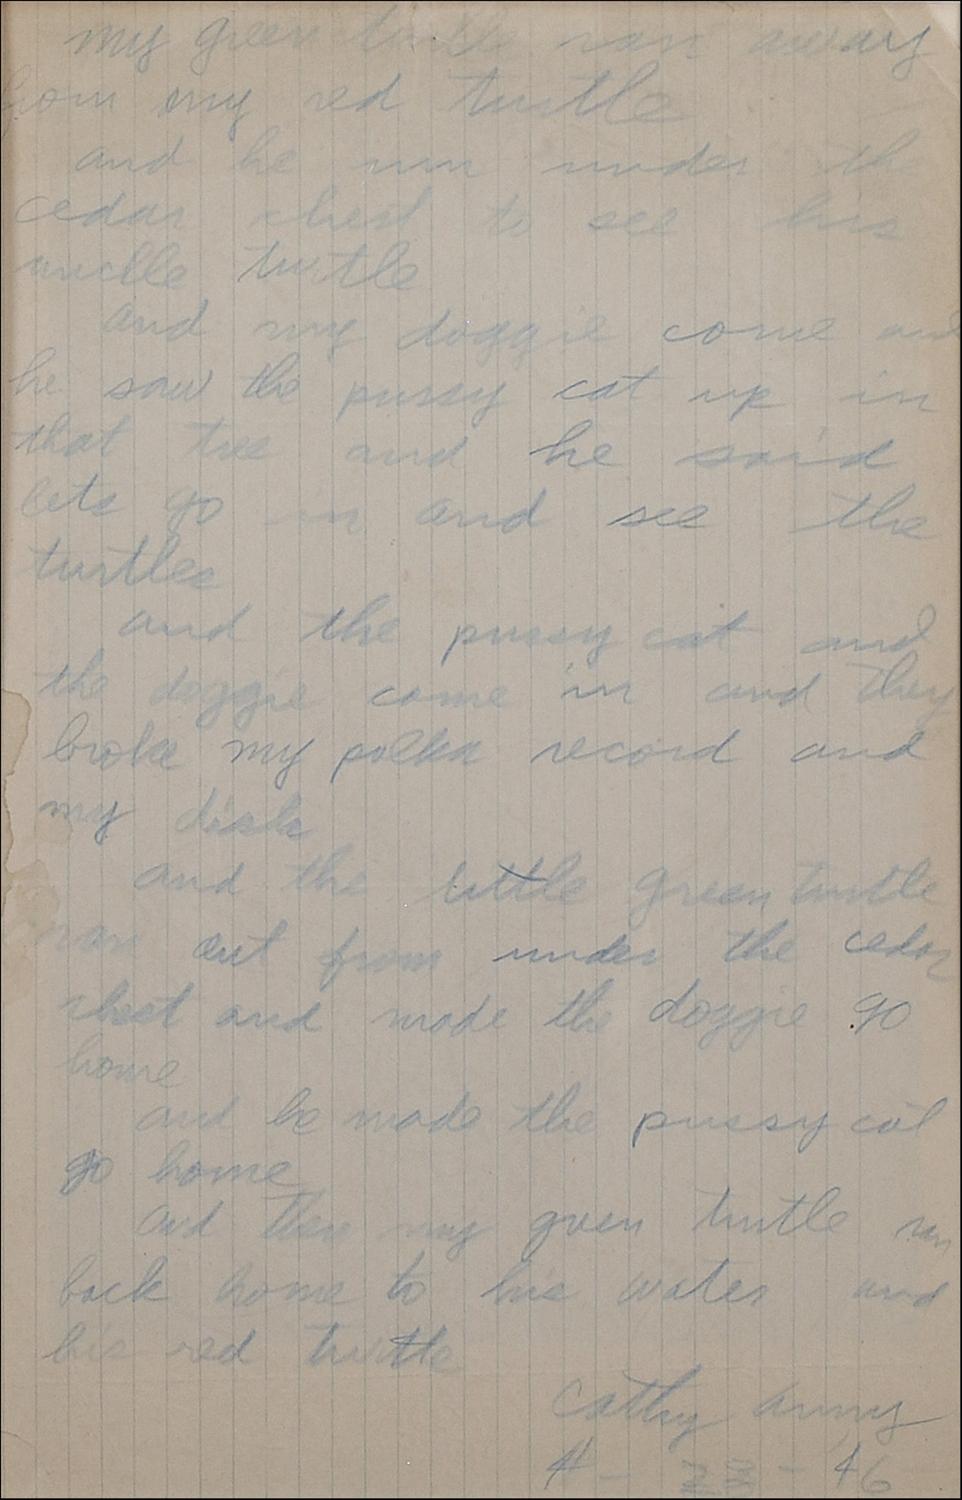 my green turtle ran away
from my red turtle
and he run under the
cedar chest to see his
unclle turtle
and my doggie come and
he saw the pussy cat up in
that tree and he said
lets go in and see the
turtles
and the pussy cat and
the doggie come in and they
broke my polka record and
my dish
and the little green turtle
ran out from under the cedar
chest and made the doggie go
home
and he made the pussy cat
go home
and then my green turtle ran
back home to his water and
his red turtle
Cathy
4 - 23 - 46